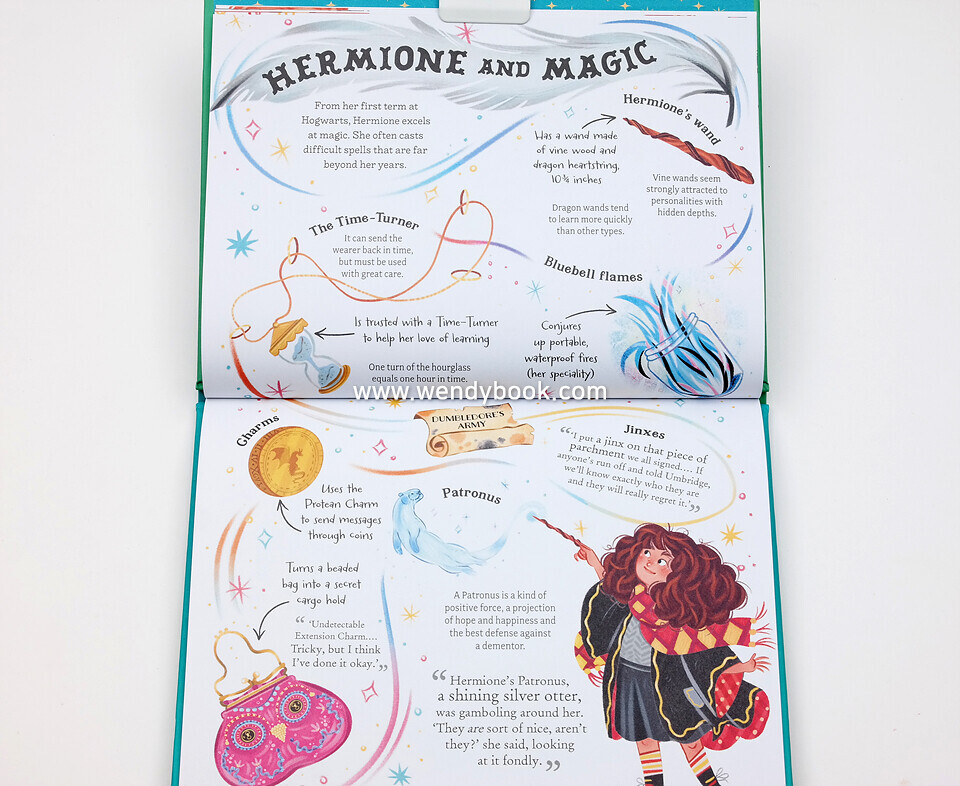 HERMIONE AND MAGIC
From her first term at
Hogwarts, Hermione excels
at magic. She often casts
difficult spells that are far
beyond her years.
Hermione's wand
Has a wand made
of vine wood and
dragon heartstring,
10¾ inches
Vine wands seem
strongly attracted to
personalities with
hidden depths.
Dragon wands tend
to learn more quickly
than other types.
The Time-Turner
It can send the
wearer back in time,
but must be used
with great care.
Is trusted with a Time-Turner
to help her love of learning
One turn of the hourglass
equals one hour in time.
Bluebell flames
Conjures
up portable,
waterproof fires
(her speciality)
www.wendybook.com
Charms
Uses the
Protean Charm
to send messages
through coins
DUMBLEDORE'S
ARMY
Jinxes
“‘I put a jinx on that piece of
parchment we all signed.... If
anyone's run off and told Umbridge,
we'll know exactly who they are
and they will really regret it.’”
Patronus
A Patronus is a kind of
positive force, a projection
of hope and happiness and
the best defense against
a dementor.
Turns a beaded
bag into a secret
cargo hold
“‘Undetectable
Extension Charm....
Tricky, but I think
I've done it okay.’”
“Hermione's Patronus,
a shining silver otter,
was gamboling around her.
‘They are sort of nice, aren't
they?’ she said, looking
at it fondly.”